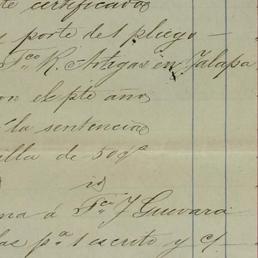 te certificado
porte del pliego —
Fco R. Artegas en Jalapa
on el pte año
la sentencia
illa de 50 qs
id
ma á Fco J Guevara
las pa 1 escrito y c/